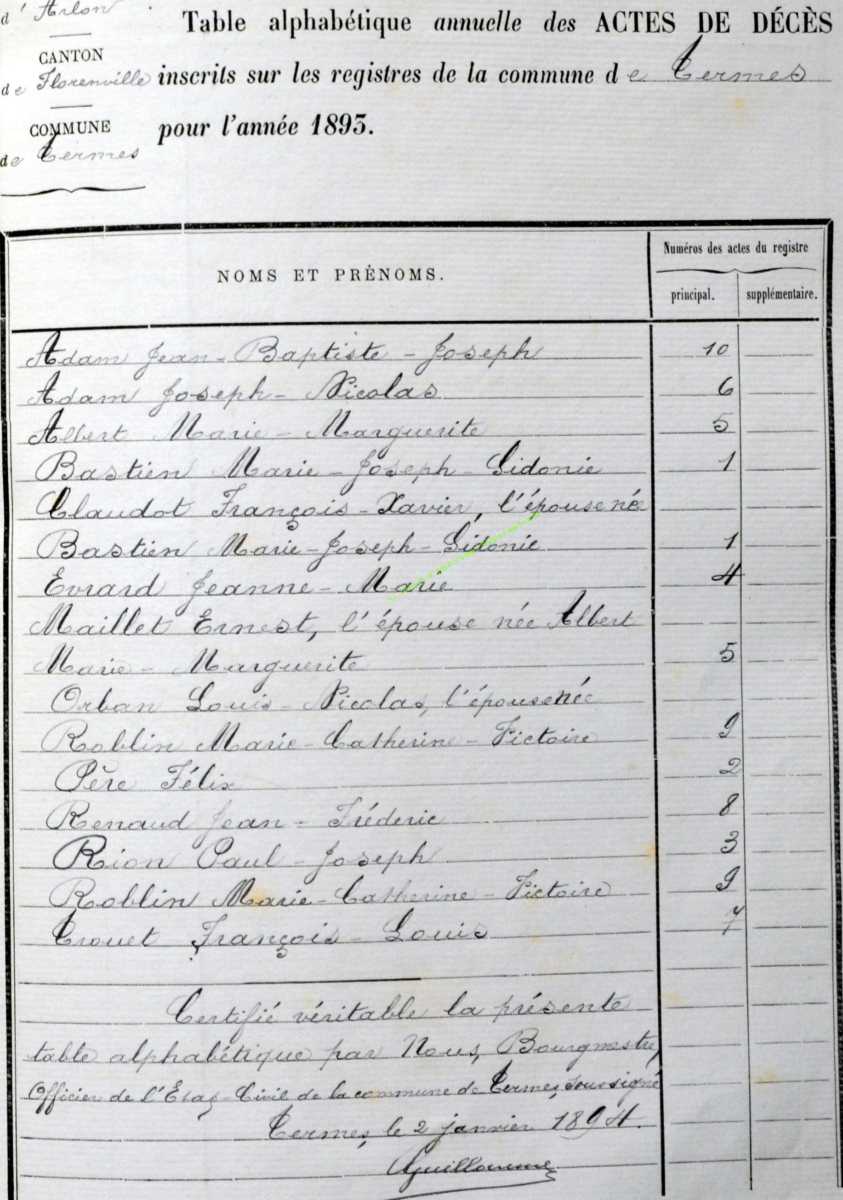 d'Arlon
CANTON
de Florenville
COMMUNE
de Termes
Table alphabétique annuelle des ACTES DE DÉCÈS
inscrits sur les registres de la commune de Termes
pour l'année 1893.
NOMS ET PRÉNOMS.
Numéros des actes du registre
principal. supplémentaire.
Adam Jean-Baptiste-Joseph 10
Adam Joseph-Nicolas 6
Albert Marie-Marguerite 5
Bastien Marie-Joseph-Sidonie 1
Claudot François-Xavier, l'épouse née
Bastien Marie-Joseph-Sidonie 1
Evrard Jeanne-Marie 4
Maillet Ernest, l'épouse née Albert
Marie-Marguerite 5
Orban Louis-Nicolas, l'épouse née
Roblin Marie-Catherine-Victoire 9
Père Félix 2
Renaud Jean-Fréderic 8
Rion Paul-Joseph 3
Roblin Marie-Catherine-Victoire 9
Trouet François-Louis 7
Certifié véritable la présente
table alphabétique par Nous, Bourgmestre,
Officier de l'Etat-Civil de la commune de Termes, soussigné
Termes, le 2 janvier 1894.
Guillaume